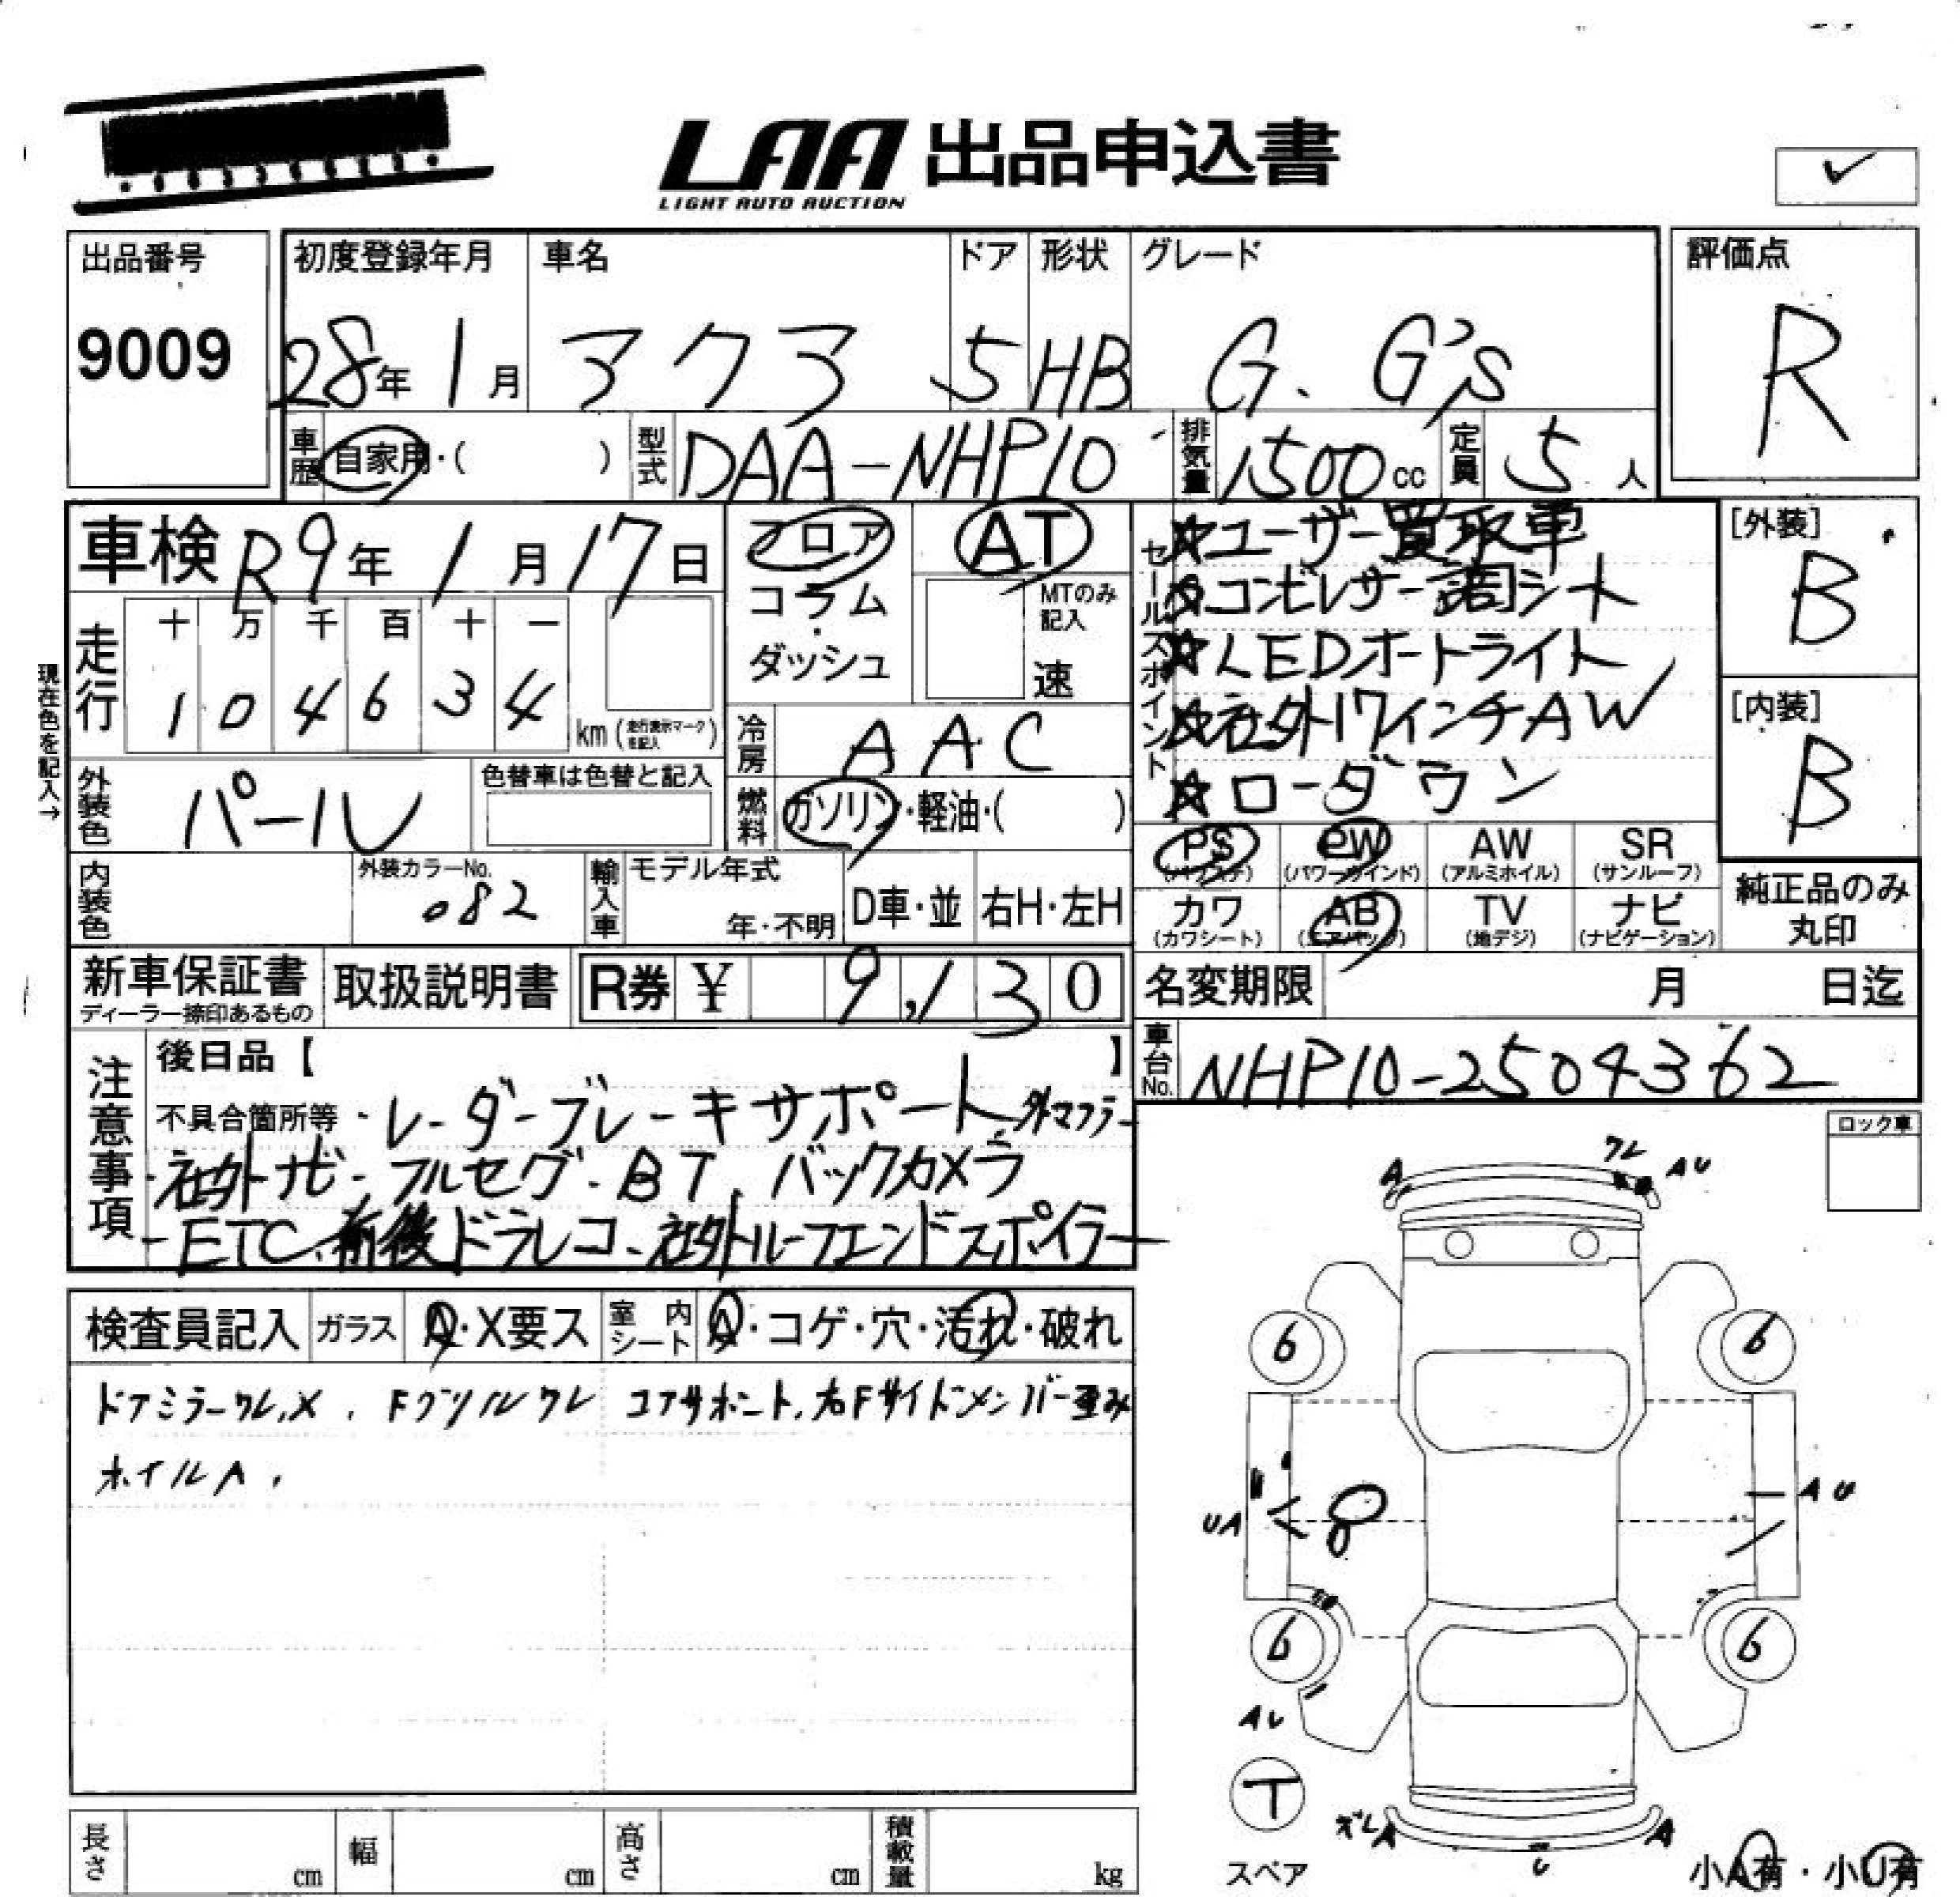 LAA 出品申込書
LIGHT AUTO AUCTION
出品番号 初度登録年月 車名 ドア 形状 グレード 評価点
9009 28年1月 アクア 5 HB G. G's R
車歴 自家用・( ) 型式 DAA-NHP10 排気量 1500cc 定員 5人
車検 R9年1月17日 フロア AT
コラム・ダッシュ MTのみ記入 速
セールスポイント
☆ユーザー買取車
☆コンビレザー調シート
☆LEDオートライト
☆社外17インチAW
☆ローダウン
[外装] B
[内装] B
現在色を記入→
走行 十 万 千 百 十 一
1 0 4 6 3 4 km (走行表示マークを記入)
冷房 AAC
外装色 パール 色替車は色替と記入 燃料 ガソリン・軽油・( )
PS (パワステ) PW (パワーウインド) AW (アルミホイル) SR (サンルーフ)
カワ (カワシート) AB (エアバッグ) TV (地デジ) ナビ (ナビゲーション)
純正品のみ丸印
内装色 外装カラーNo. 082 輸入車 モデル年式 年・不明 D車・並 右H・左H
新車保証書 ディーラー捺印あるもの 取扱説明書 R券 ¥ 9,130 名変期限 月 日迄
車台No. NHP10-2504362
注意事項 後日品【 】
不具合箇所等・レーダーブレーキサポート 外マフラー
・社外ナビ、フルセグ、BT、バックカメラ
・ETC、前後ドラレコ、社外ルーフエンドスポイラー
ロック車
検査員記入 ガラス A・X要ス 室内シート A・コゲ・穴・汚れ・破れ
ドアミラーワレ,X、Fグリルワレ コアサポート、右Fサイドメンバー歪み
ホイルA、
A ワレ AU
6 6
UA AU
6 6
AU
T
スペア
ズレA U A
小A有・小U有
長さ cm 幅 cm 高さ cm 積載量 kg